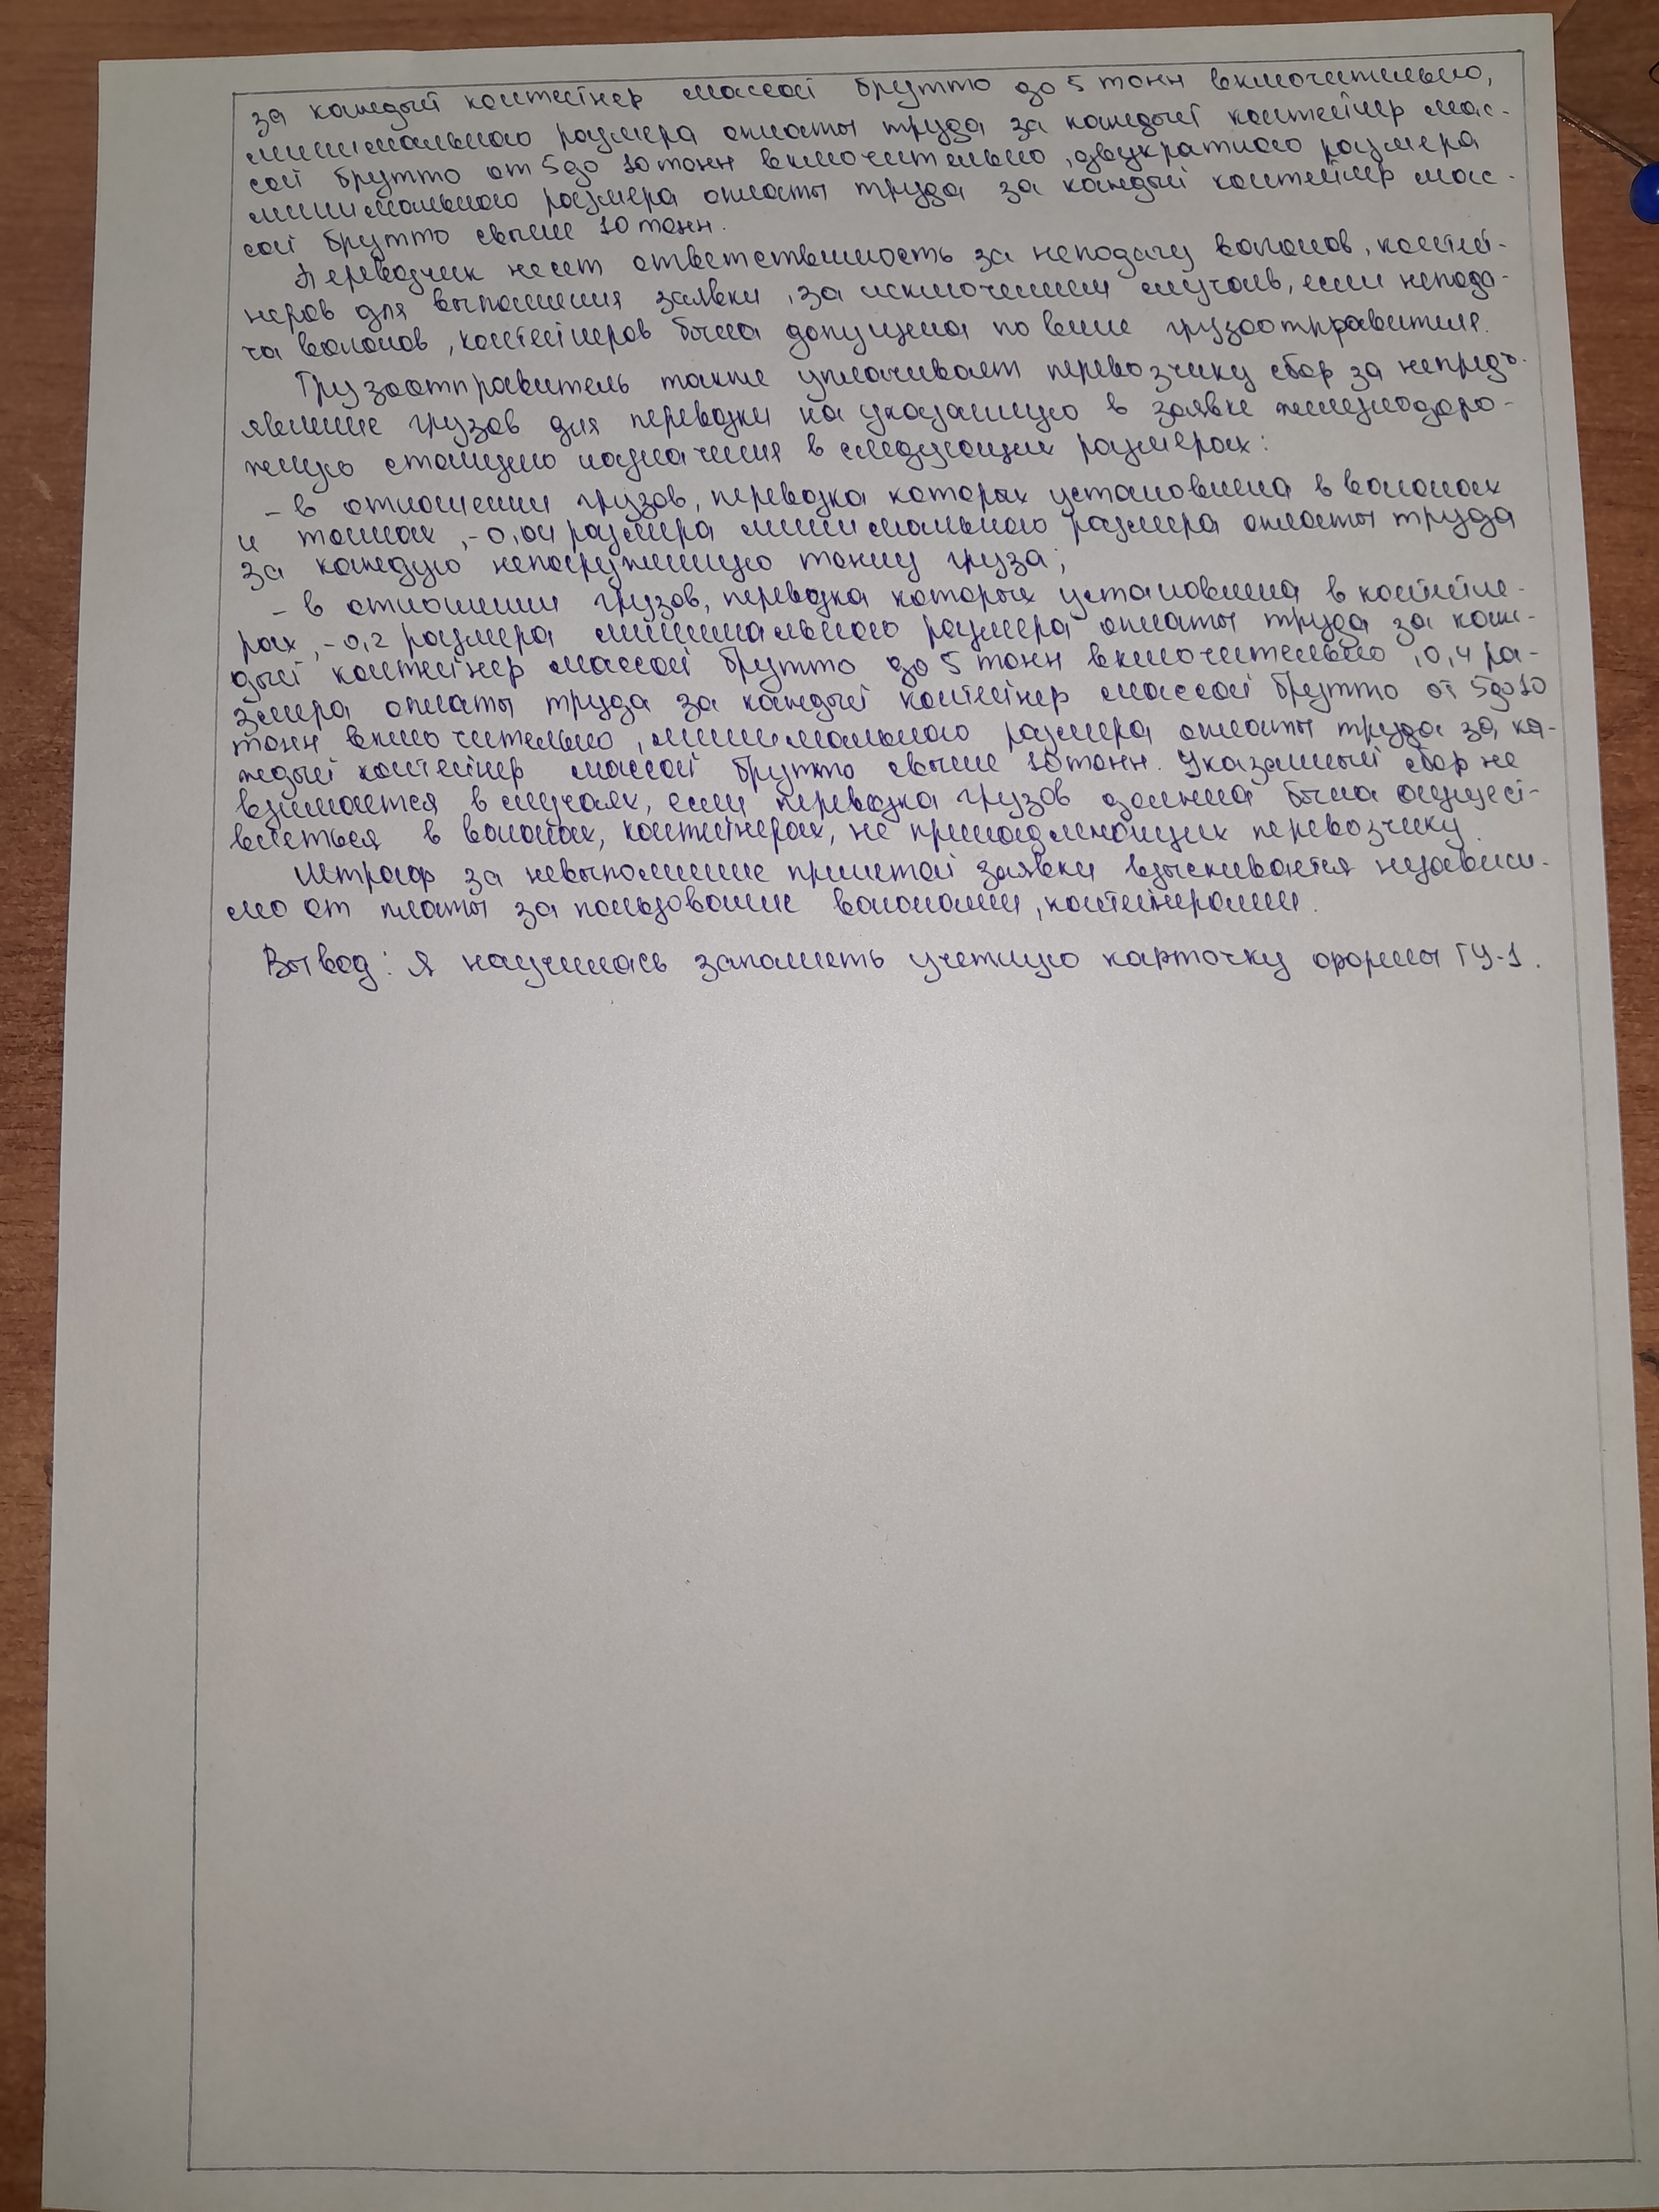 за каждый контейнер массой брутто до 5 тонн включительно,
минимального размера оплаты труда за каждый контейнер мас-
сой брутто от 5 до 10 тонн включительно, двукратного размера
минимального размера оплаты труда за каждый контейнер мас-
сой брутто свыше 10 тонн.
Перевозчик несет ответственность за неподачу вагонов, контей-
неров для выполнения заявки, за исключением случаев, если непода-
ча вагонов, контейнеров была допущена по вине грузоотправителя.
Грузоотправитель также уплачивает перевозчику сбор за непредъ-
явление грузов для перевозки на указанную в заявке железнодоро-
жную станцию назначения в следующих размерах:
- в отношении грузов, перевозка которых установлена в вагонах
и тоннах, - 0,04 размера минимального размера оплаты труда
за каждую непогруженную тонну груза;
- в отношении грузов, перевозка которых установлена в контейне-
рах, - 0,2 размера минимального размера оплаты труда за каж-
дый контейнер массой брутто до 5 тонн включительно, 0,4 ра-
змера оплаты труда за каждый контейнер массой брутто от 5 до 10
тонн включительно, минимального размера оплаты труда за ка-
ждый контейнер массой брутто свыше 10 тонн. Указанный сбор не
взимается в случаях, если перевозка грузов должна была осущест-
вляться в вагонах, контейнерах, не принадлежащих перевозчику.
Штраф за невыполнение принятой заявки взыскивается независи-
мо от платы за пользование вагонами, контейнерами.
Вывод: Я научилась заполнять учетную карточку формы ГУ-1.